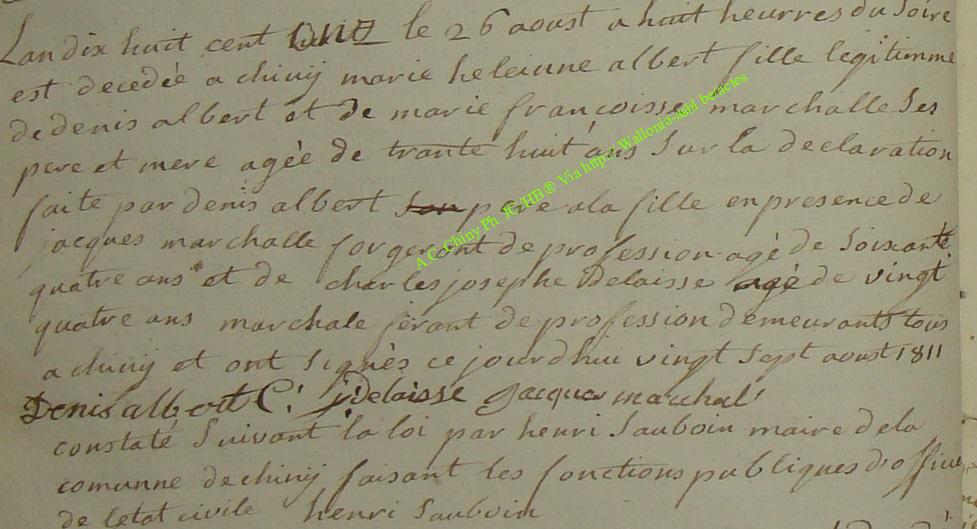 Lan dix huit cent onze le 26 aoust a huit heurres du soire
est decedée a chinij marie heleinne albert fille legitimme
de denis albert et de marie françoisse marchalle ses
pere et mere agée de trante huit ans sur la declaration
faite par denis albert son pere a la fille en presence de
jacques marchalle forgeront de profession agé de soixante
quatre ans et de charles josephe delaisse agé de vingt
quatre ans marchale ferant de profession demeurants tous
a chinij et ont signés ce jourdhui vingt sept aoust 1811
Denis albert C: j: Delaisse Jacques marchal
constaté suivant la loi par henri sauboin maire de la
comunne de chinij faisant les fonctions publiques d'officier
de letat civile henri sauboin
A.C. Chiny Ph. JC-HB ® Via http:/Wallonia-asbl be/actes